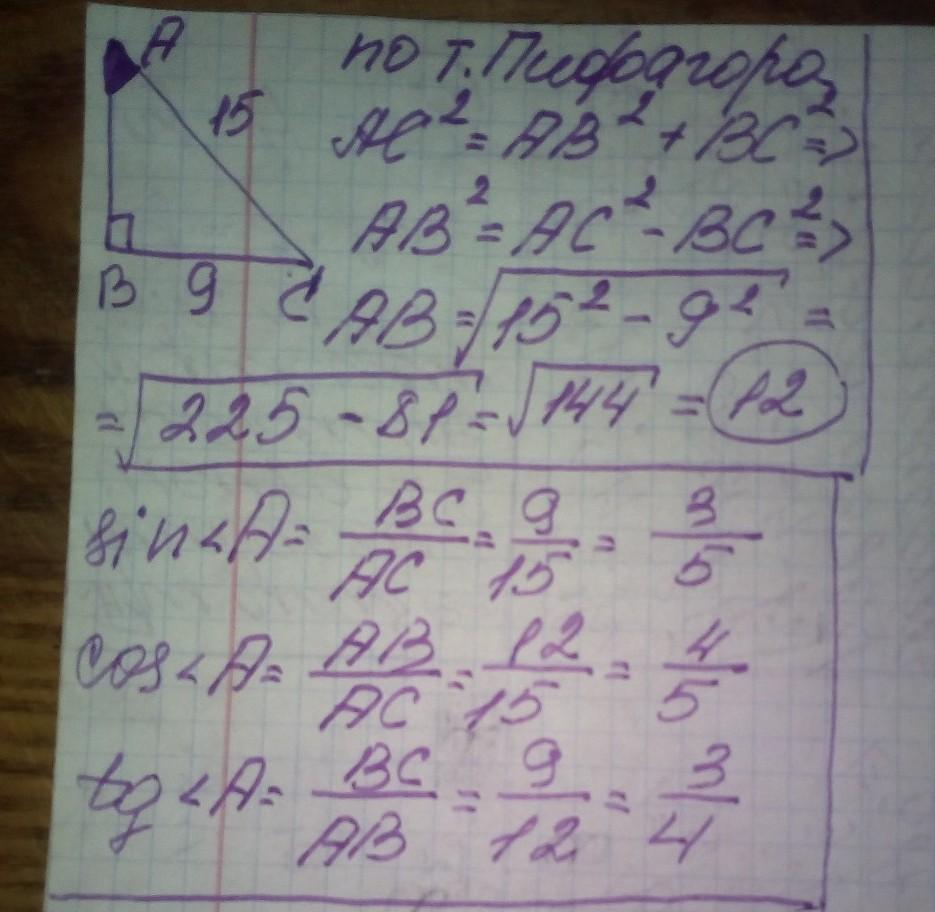 A
15
B 9 C
по т. Пифагора
AC² = AB² + BC² =>
AB² = AC² - BC² =>
AB = √15² - 9² =
= √225 - 81 = √144 = 12
sin < A = BC/AC = 9/15 = 3/5
cos < A = AB/AC = 12/15 = 4/5
tg < A = BC/AB = 9/12 = 3/4